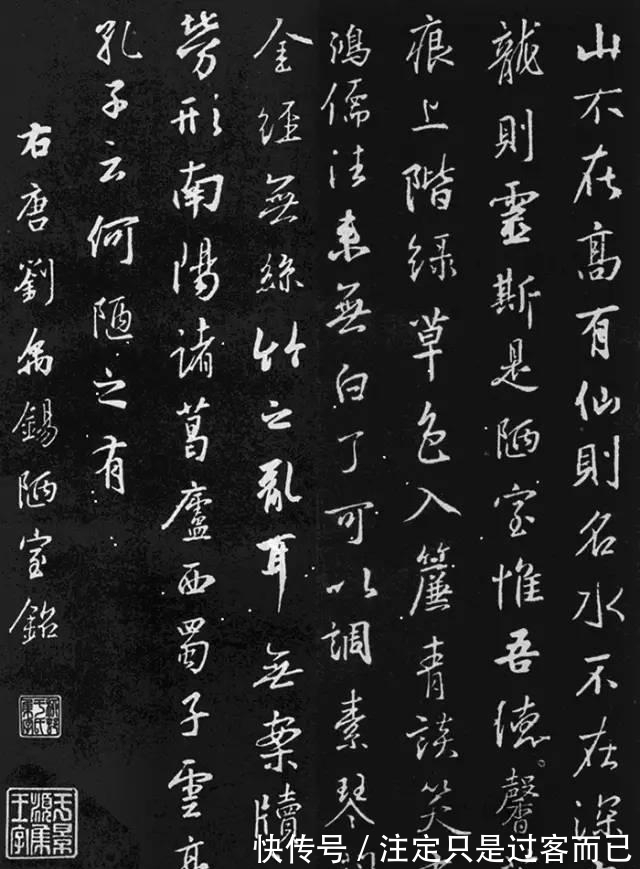 山不在高有仙則名水不在深
龍則靈斯是陋室惟吾德馨
痕上階緑草色入簾青談笑
鴻儒往来無白丁可以調素琴
金經無絲竹之亂耳無案牘
勞形南陽諸葛廬西蜀子雲亭
孔子云何陋之有
右唐劉禹錫陋室銘
快传号/注定只是过客而已